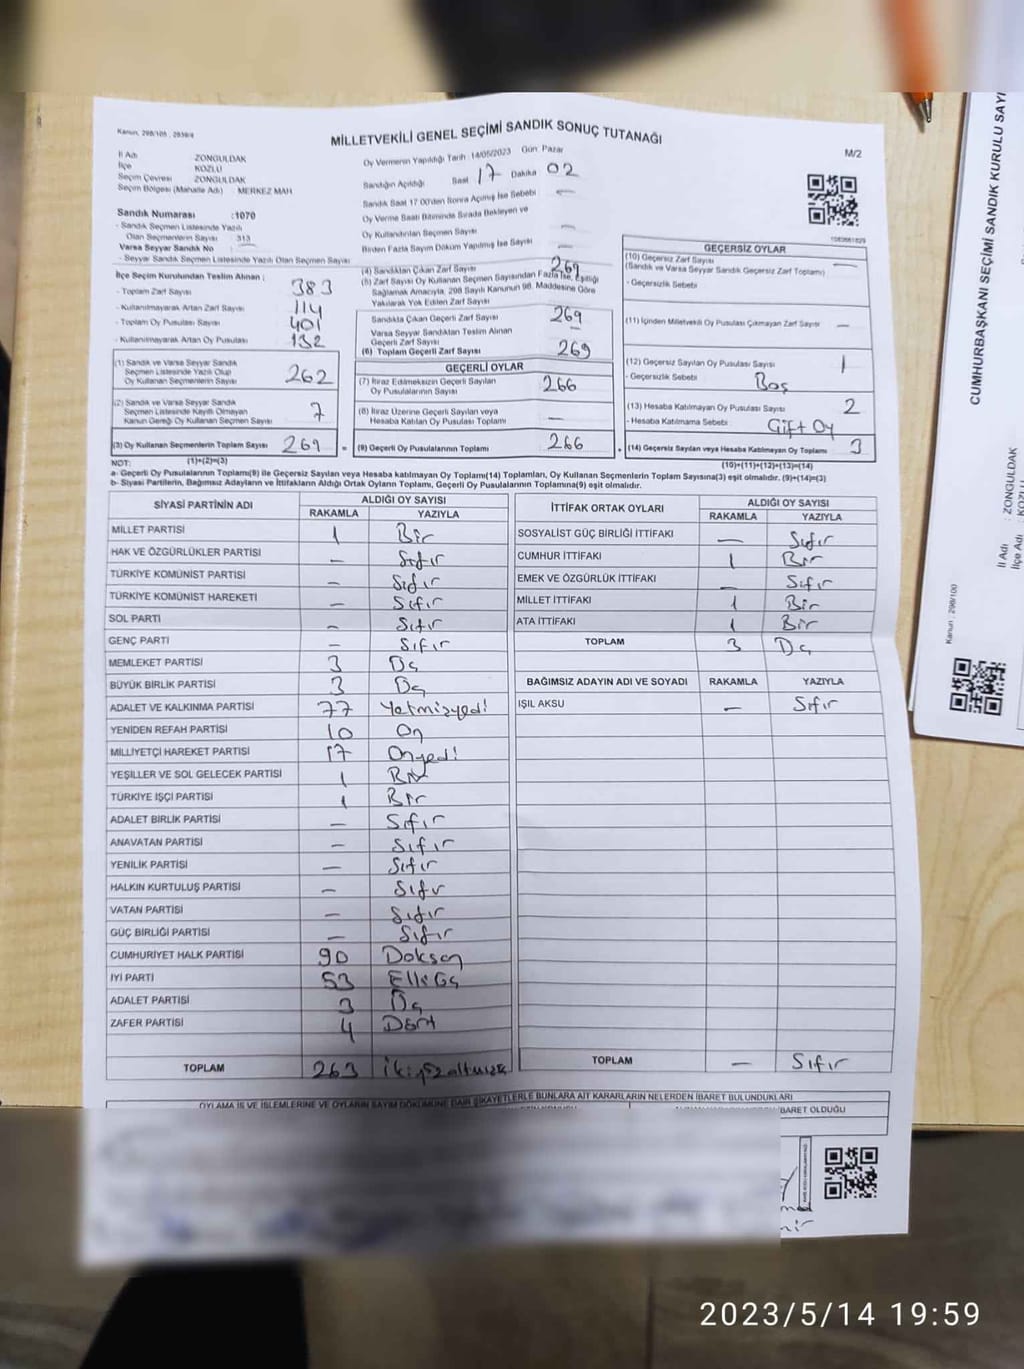 Kanun, 298/105 , 2839/4
MİLLETVEKİLİ GENEL SEÇİMİ SANDIK SONUÇ TUTANAĞI
M/2
İl Adı ZONGULDAK
İlçe KOZLU
Seçim Çevresi ZONGULDAK
Seçim Bölgesi (Mahalle Adı) : MERKEZ MAH
Oy Vermenin Yapıldığı Tarih 14/05/2023 Gün: Pazar
Sandığın Açıldığı Saat 17 Dakika 02
Sandık Saat 17:00'den Sonra Açılmış İse Sebebi —
Oy Verme Saati Bitiminde Sırada Bekleyen ve
Oy Kullandırılan Seçmen Sayısı —
Birden Fazla Sayım Döküm Yapılmış İse Sayısı —
Sandık Numarası :1070
- Sandık Seçmen Listesinde Yazılı
Olan Seçmenlerin Sayısı 313
Varsa Seyyar Sandık No —
- Seyyar Sandık Seçmen Listesinde Yazılı Olan Seçmen Sayısı
İlçe Seçim Kurulundan Teslim Alınan :
- Toplam Zarf Sayısı 383
- Kullanılmayarak Artan Zarf Sayısı 114
- Toplam Oy Pusulası Sayısı 401
- Kullanılmayarak Artan Oy Pusulası 132
(1) Sandık ve Varsa Seyyar Sandık
Seçmen Listesinde Yazılı Olup
Oy Kullanan Seçmenlerin Sayısı 262
(2) Sandık ve Varsa Seyyar Sandık
Seçmen Listesine Kayıtlı Olmayan
Kanun Gereği Oy Kullanan Seçmen Sayısı 7
(3) Oy Kullanan Seçmenlerin Toplam Sayısı 269
(1)+(2)=(3)
(4) Sandıktan Çıkan Zarf Sayısı 269
(5) Zarf Sayısı Oy Kullanan Seçmen Sayısından Fazla İse, Eşitliği
Sağlamak Amacıyla, 298 Sayılı Kanunun 98. Maddesine Göre
Yakılarak Yok Edilen Zarf Sayısı
Sandıkta Çıkan Geçerli Zarf Sayısı 269
Varsa Seyyar Sandıktan Teslim Alınan
Geçerli Zarf Sayısı —
(6) Toplam Geçerli Zarf Sayısı 269
GEÇERLİ OYLAR
(7) İtiraz Edilmeksizin Geçerli Sayılan
Oy Pusulalarının Sayısı 266
(8) İtiraz Üzerine Geçerli Sayılan veya
Hesaba Katılan Oy Pusulası Toplamı —
(9) Geçerli Oy Pusulalarının Toplamı 266
1083661829
GEÇERSİZ OYLAR
(10) Geçersiz Zarf Sayısı —
(Sandık ve Varsa Seyyar Sandık Geçersiz Zarf Toplamı)
- Geçersizlik Sebebi
(11) İçinden Milletvekili Oy Pusulası Çıkmayan Zarf Sayısı —
(12) Geçersiz Sayılan Oy Pusulası Sayısı 1
- Geçersizlik Sebebi Boş
(13) Hesaba Katılmayan Oy Pusulası Sayısı 2
- Hesaba Katılmama Sebebi Çift Oy
(14) Geçersiz Sayılan veya Hesaba Katılmayan Oy Toplamı 3
(10)+(11)+(12)+(13)=(14)
NOT:
a- Geçerli Oy Pusulalarının Toplamı(9) ile Geçersiz Sayılan veya Hesaba katılmayan Oy Toplamı(14) Toplamları, Oy Kullanan Seçmenlerin Toplam Sayısına(3) eşit olmalıdır. (9)+(14)=(3)
b- Siyasi Partilerin, Bağımsız Adayların ve İttifakların Aldığı Ortak Oyların Toplamı, Geçerli Oy Pusulalarının Toplamına(9) eşit olmalıdır.
SİYASİ PARTİNİN ADI ALDIĞI OY SAYISI
RAKAMLA YAZIYLA
MİLLET PARTİSİ 1 Bir
HAK VE ÖZGÜRLÜKLER PARTİSİ — Sıfır
TÜRKİYE KOMÜNİST PARTİSİ — Sıfır
TÜRKİYE KOMÜNİST HAREKETİ — Sıfır
SOL PARTİ — Sıfır
GENÇ PARTİ — Sıfır
MEMLEKET PARTİSİ 3 Üç
BÜYÜK BİRLİK PARTİSİ 3 Üç
ADALET VE KALKINMA PARTİSİ 77 Yetmişyedi
YENİDEN REFAH PARTİSİ 10 On
MİLLİYETÇİ HAREKET PARTİSİ 17 Onyedi
YEŞİLLER VE SOL GELECEK PARTİSİ 1 Bir
TÜRKİYE İŞÇİ PARTİSİ 1 Bir
ADALET BİRLİK PARTİSİ — Sıfır
ANAVATAN PARTİSİ — Sıfır
YENİLİK PARTİSİ — Sıfır
HALKIN KURTULUŞ PARTİSİ — Sıfır
VATAN PARTİSİ — Sıfır
GÜÇ BİRLİĞİ PARTİSİ — Sıfır
CUMHURİYET HALK PARTİSİ 90 Doksan
İYİ PARTİ 53 Elliüç
ADALET PARTİSİ 3 Üç
ZAFER PARTİSİ 4 Dört
TOPLAM 263 İkiyüzaltmışüç
İTTİFAK ORTAK OYLARI ALDIĞI OY SAYISI
RAKAMLA YAZIYLA
SOSYALİST GÜÇ BİRLİĞİ İTTİFAKI — Sıfır
CUMHUR İTTİFAKI 1 Bir
EMEK VE ÖZGÜRLÜK İTTİFAKI — Sıfır
MİLLET İTTİFAKI 1 Bir
ATA İTTİFAKI 1 Bir
TOPLAM 3 Üç
BAĞIMSIZ ADAYIN ADI VE SOYADI RAKAMLA YAZIYLA
IŞIL AKSU — Sıfır
TOPLAM — Sıfır
OYLAMA İŞ VE İŞLEMLERİNE VE OYLARIN SAYIM DÖKÜMÜNE DAİR ŞİKAYETLERLE BUNLARA AİT KARARLARIN NELERDEN İBARET BULUNDUKLARI
İBARET OLDUĞU
CUMHURBAŞKANI SEÇİMİ SANDIK KURULU SAYI
İl Adı : ZONGULDAK
İlçe Adı : KOZLU
Kanun : 298/100
2023/5/14 19:59